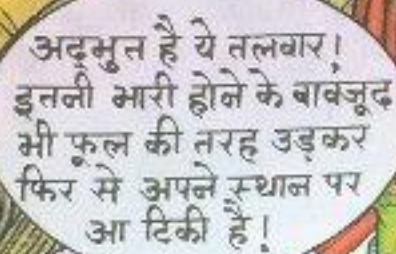 अद्भुत है ये तलवार!
इतनी भारी होने के बावजूद
भी फूल की तरह उड़कर
फिर से अपने स्थान पर
आ टिकी है!